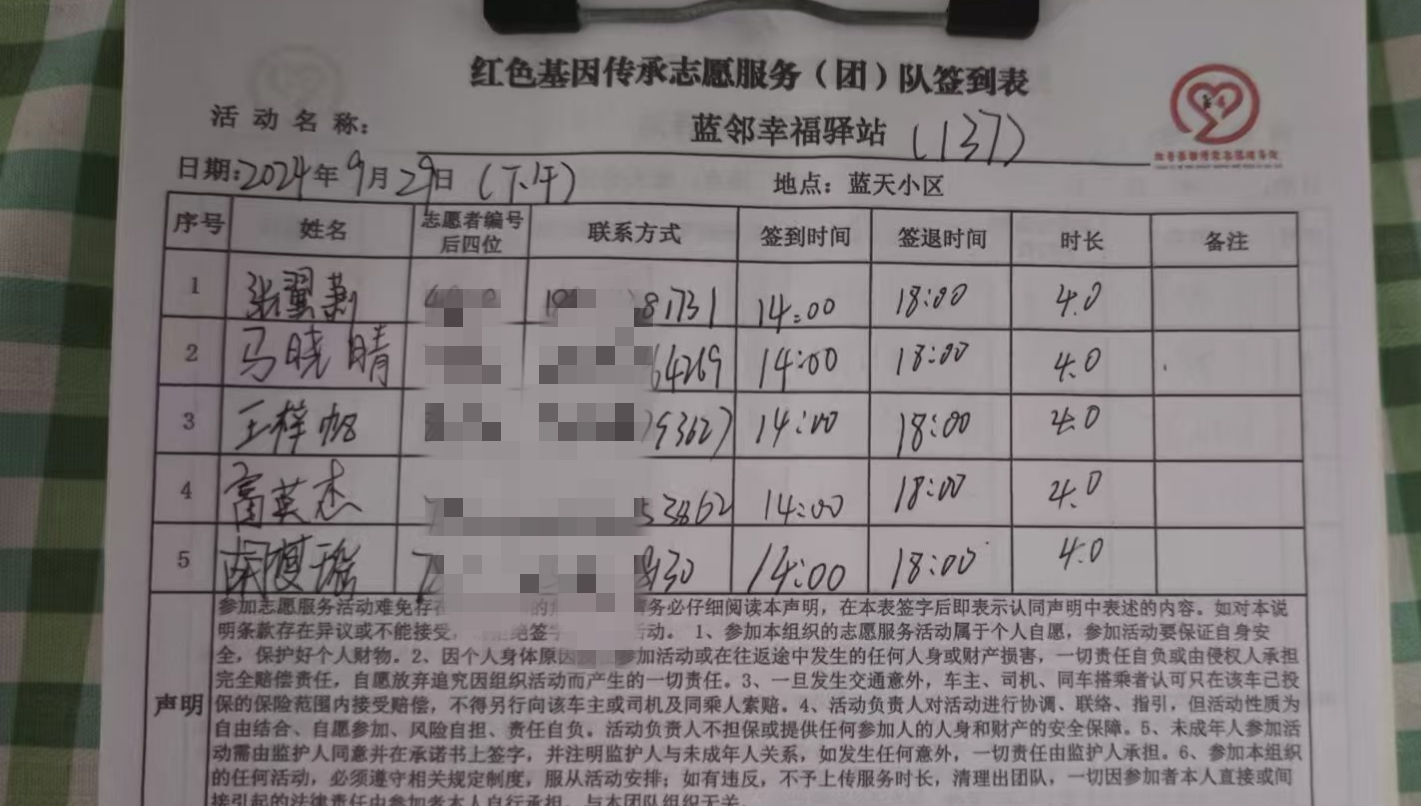 红色基因传承志愿服务（团）队签到表
活动名称： 蓝邻幸福驿站 (137)
日期:2024年9月29日 (下午) 地点：蓝天小区
序号 姓名 志愿者编号后四位 联系方式 签到时间 签退时间 时长 备注
1 张翼 81731 14:00 18:00 4.0
2 马晓晴 64269 14:00 18:00 4.0
3 王梓 93627 14:00 18:00 4.0
4 富英杰 53862 14:00 18:00 4.0
5 830 14:00 18:00 4.0
声明
参加志愿服务活动难免存在 的 务必仔细阅读本声明，在本表签字后即表示认同声明中表述的内容。如对本说
明条款存在异议或不能接受， 绝签字 活动。 1、参加本组织的志愿服务活动属于个人自愿，参加活动要保证自身安
全，保护好个人财物。2、因个人身体原因 参加活动或在往返途中发生的任何人身或财产损害，一切责任自负或由侵权人承担
完全赔偿责任，自愿放弃追究因组织活动而产生的一切责任。3、一旦发生交通意外，车主、司机、同车搭乘者认可只在该车已投
保的保险范围内接受赔偿，不得另行向该车主或司机及同乘人索赔。4、活动负责人对活动进行协调、联络、指引，但活动性质为
自由结合、自愿参加、风险自担、责任自负。活动负责人不担保或提供任何参加人的人身和财产的安全保障。5、未成年人参加活
动需由监护人同意并在承诺书上签字，并注明监护人与未成年人关系，如发生任何意外，一切责任由监护人承担。6、参加本组织
的任何活动，必须遵守相关规定制度，服从活动安排；如有违反，不予上传服务时长，清理出团队，一切因参加者本人直接或间
接引起的法律责任由参加者本人自行承担，与本团队组织无关。